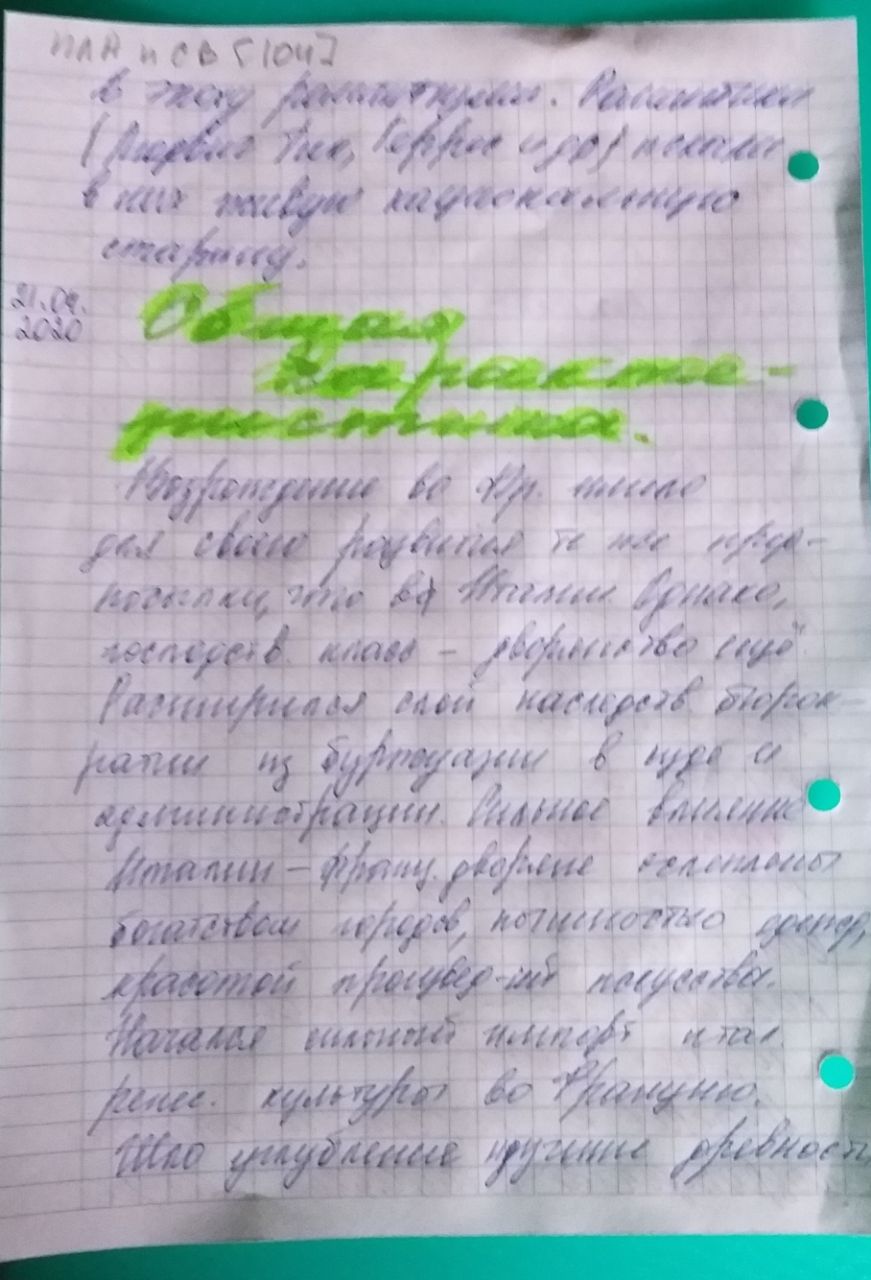 ПЛА и СВ [104]
в эпоху романтизма. Романтики
(Людвиг Тик, Гёррес и др) искали
в них живую национальную
старину.
21.04.
2020
Общая
характе-
ристика.
Возрождение во Фр. имело
для своего развития те же пред-
посылки, что в Италии. Однако,
господств. класс – дворянство ещё.
Расширился слой наследств. бюрок-
ратии из буржуазии в суде и
администрации. Сильное влияние
Италии – франц. дворяне ослеплены
богатством городов, пышностью одежд,
красотой произвед-ий искусства.
Начался сильный импорт итал.
ренес. культуры во Францию.
Шло углубление изучение древности